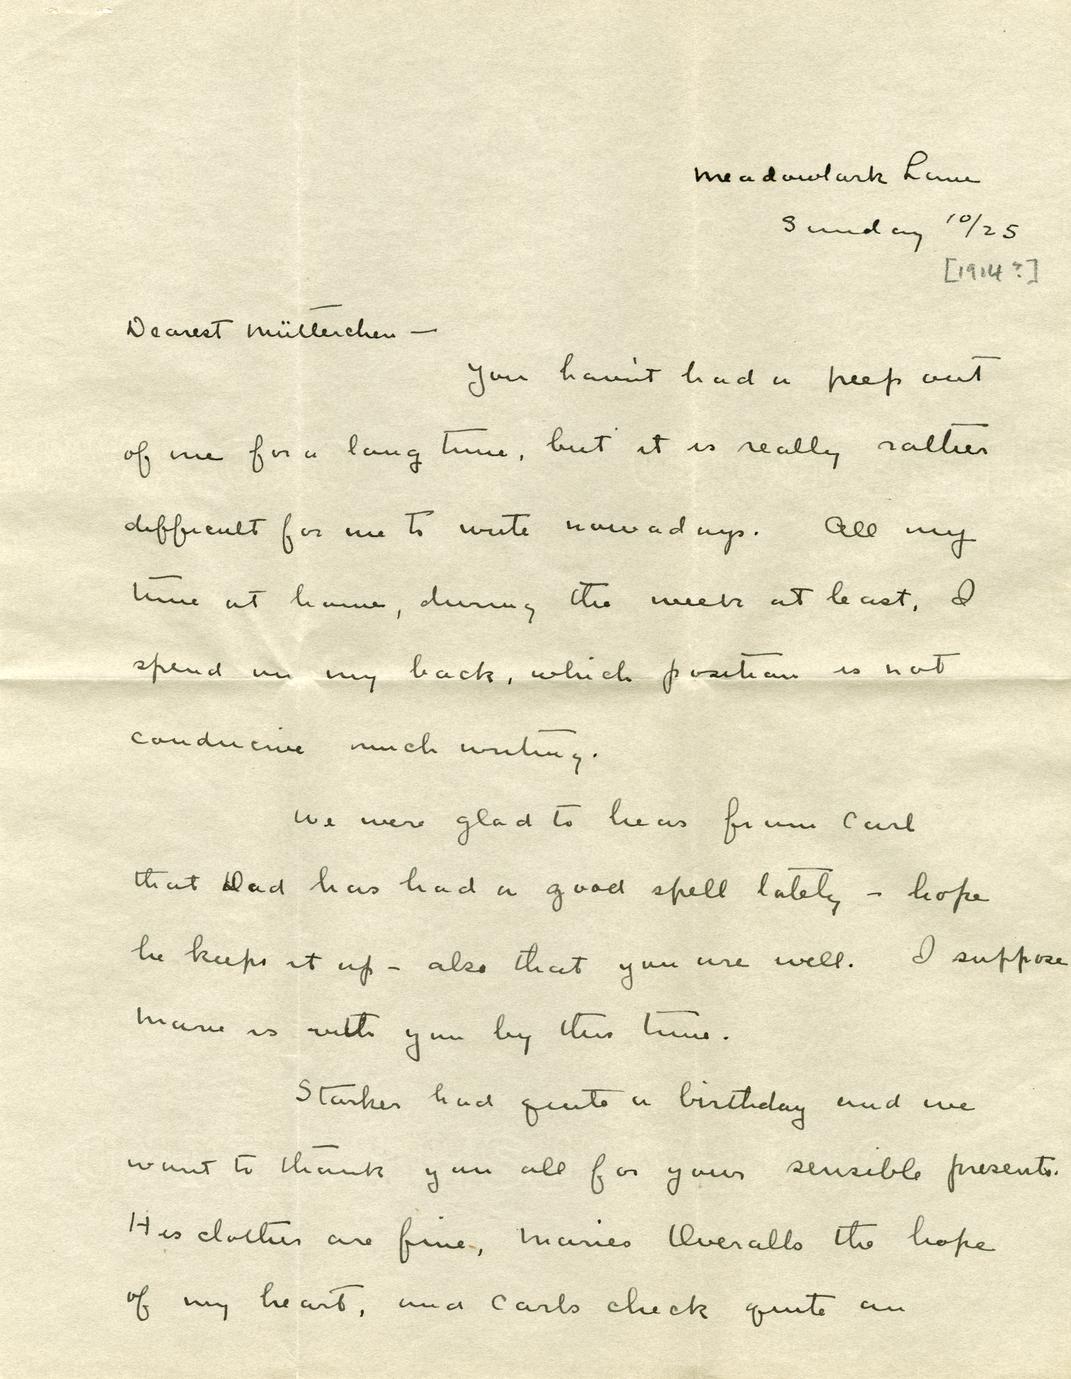 Meadowlark Lane
Sunday 10/25
[1914?]
Dearest Mütterchen —
You havn't had a peep out
of me for a long time, but it is really rather
difficult for me to write nowadays. All my
time at home, during the week at least, I
spend on my back, which position is not
conducive much writing.
We were glad to hear from Carl
that Dad has had a good spell lately - hope
he keeps it up - also that you are well. I suppose
Marie is with you by this time.
Starker had quite a birthday and we
want to thank you all for your sensible presents.
His clothes are fine, Maries Overalls the hope
of my heart, and Carls check quite an